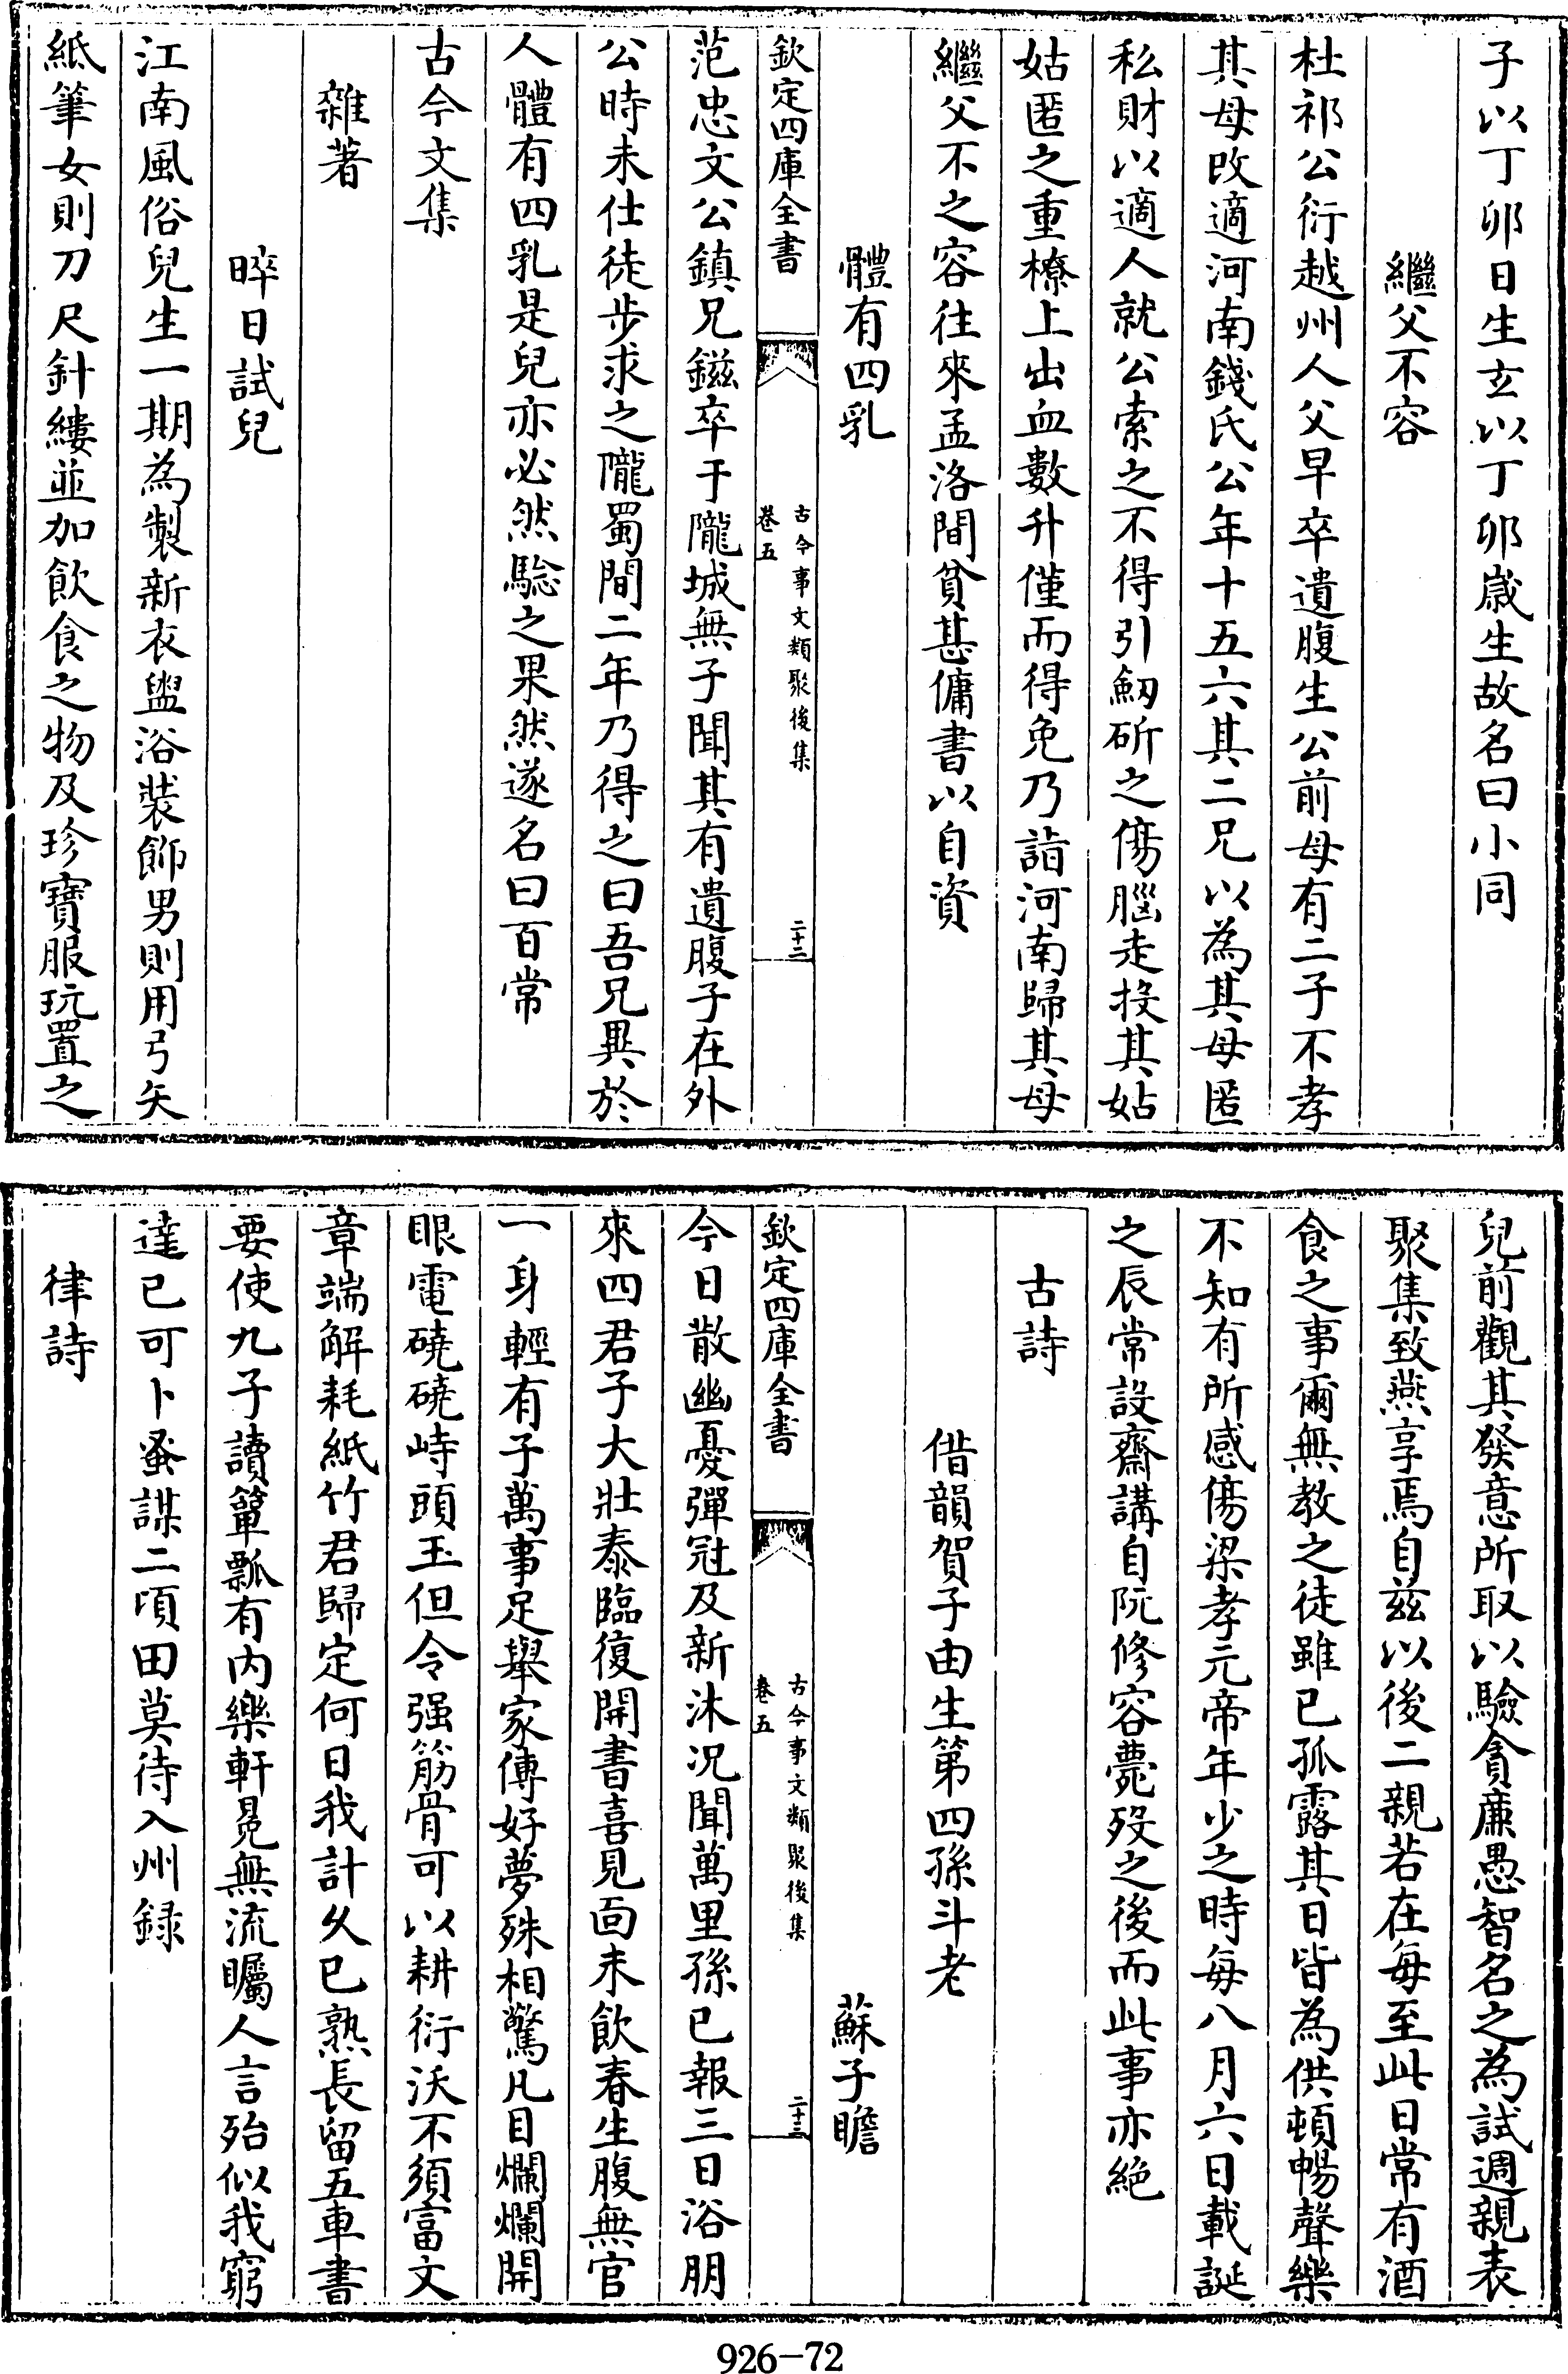 子以丁卯日生玄以丁卯歲生故名曰小同
繼父不容
杜祁公衍越州人父早卒遺腹生公前母有二子不孝
其母改適河南錢氏公年十五六其二兄以為其母匿
私財以適人就公索之不得引劒斫之傷腦走投其姑
姑匿之重橑上出血數升僅而得免乃詣河南歸其母
繼父不之容往來孟洛間貧甚傭書以自資
體有四乳
欽定四庫全書
古今事文類聚後集
卷五
二十二
范忠文公鎮兄鎡卒于隴城無子聞其有遺腹子在外
公時未仕徒步求之隴蜀間二年乃得之曰吾兄異於
人體有四乳是兒亦必然驗之果然遂名曰百常
古今文集
雜著
晬日試兒
江南風俗兒生一期為製新衣盥浴裝飾男則用弓矢
紙筆女則刀尺針縷並加飲食之物及珍寶服玩置之
兒前觀其發意所取以驗貪廉愚智名之為試週親表
聚集致燕享焉自兹以後二親若在每至此日常有酒
食之事爾無教之徒雖已孤露其日皆為供頓暢聲樂
不知有所感傷梁孝元帝年少之時每八月六日載誕
之辰常設齋講自阮修容薨歿之後而此事亦絶
古詩
借韻賀子由生第四孫斗老
蘇子瞻
欽定四庫全書
古今事文類聚後集
卷五
二十三
今日散幽憂彈冠及新沐况聞萬里孫已報三日浴朋
來四君子大壯泰臨復開書喜見面未飲春生腹無官
一身輕有子萬事足舉家傳好夢殊相驚凡目爛爛開
眼電磽磽峙頭玉但令强筋骨可以耕衍沃不須富文
章端解耗紙竹君歸定何日我計久已熟長留五車書
要使九子讀簞瓢有内樂軒冕無流矚人言殆似我窮
達已可卜蚤謀二頃田莫待入州録
律詩
926-72